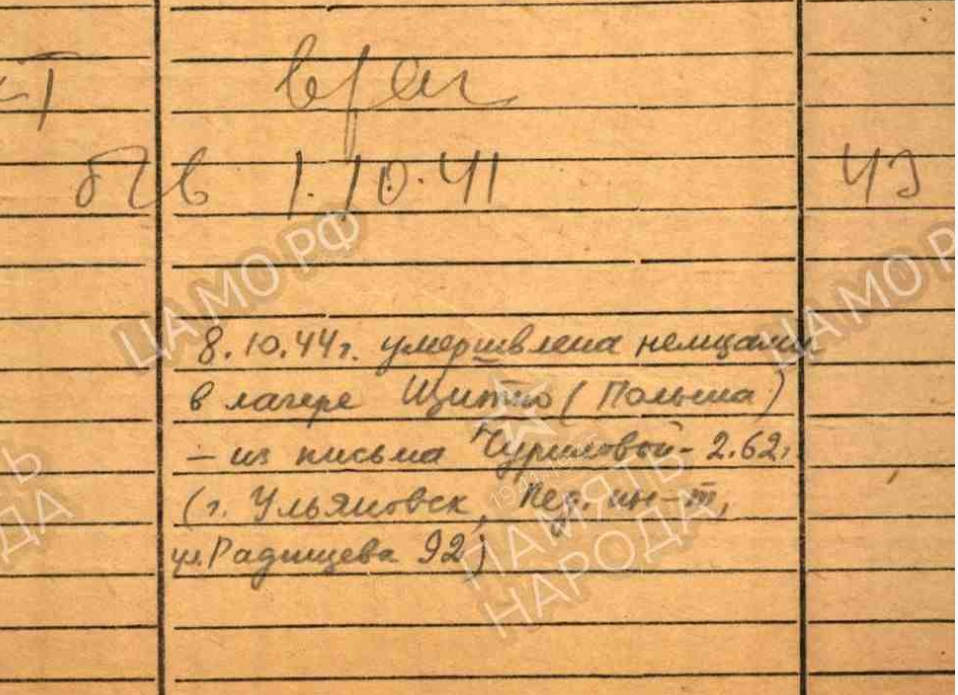 врач
б/в 1.10.41 43
8.10.44г. умерщвлена немцами
в лагере Щитно (Польша)
– из письма Чуриловой - 2.62г
(г. Ульяновск, Пед. ин-т,
ул. Радищева 92)
ЦАМО РФ
ЦАМО РФ
ПАМЯТЬ
НАРОДА